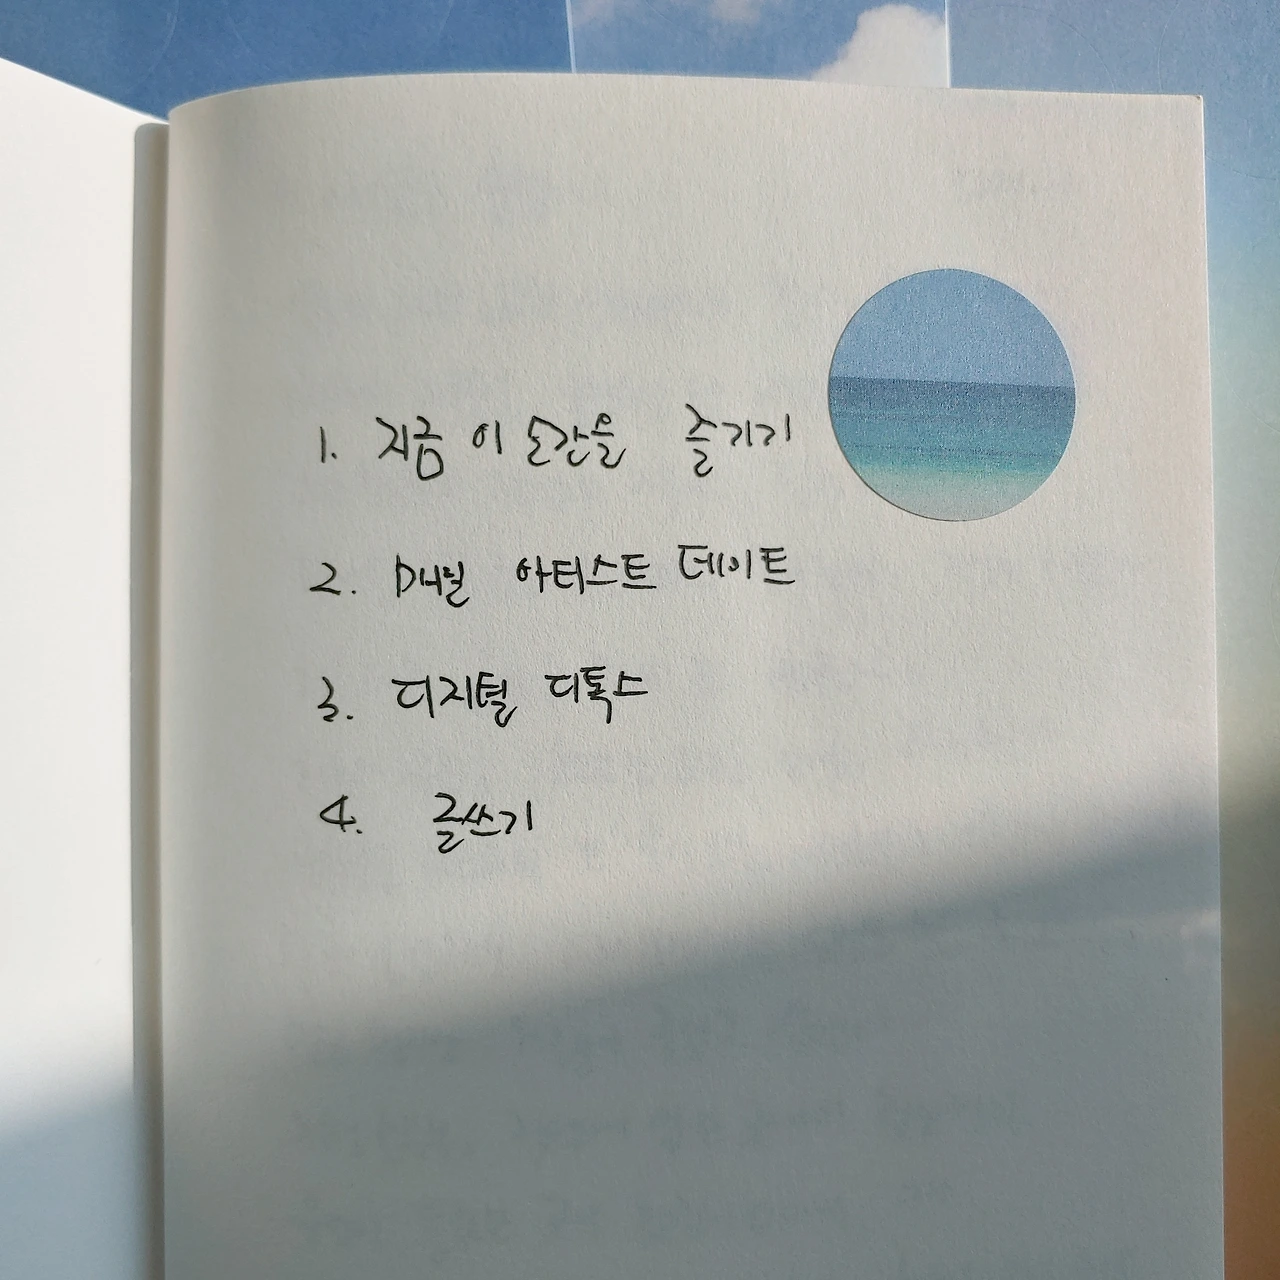 1. 지금 이 순간을 즐기기
2. 매일 아티스트 데이트
3. 디지털 디톡스
4. 글쓰기